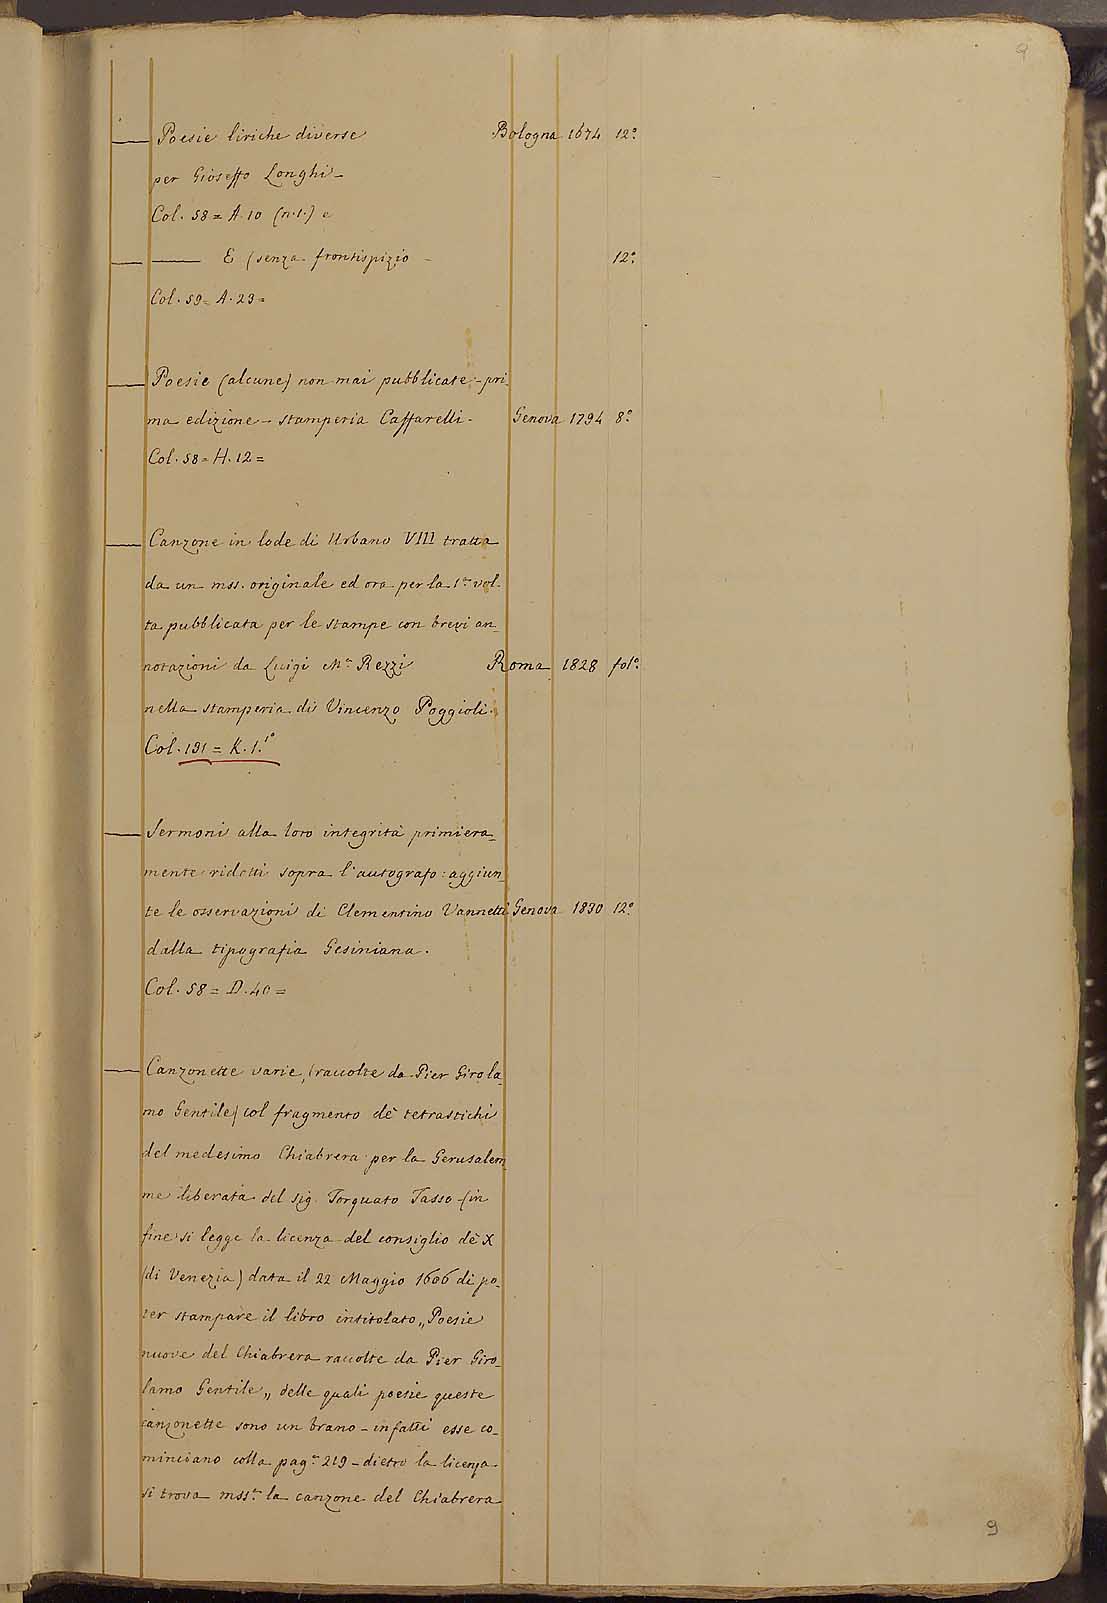 9
Poesie liriche diverse Bologna 1674 12.º
per Gioseffo Longhi -
Col. 58 = A. 10 (n. 1.) e
E (senza frontispizio - 12.º
Col. 59 = A. 23 =
Poesie (alcune) non mai pubblicate - pri-
ma edizione - stamperia Caffarelli - Genova 1794 8.º
Col. 58 = H. 12 =
Canzone in lode di Urbano VIII tratta
da un mss. originale ed ora per la 1.ª vol-
ta pubblicata per le stampe con brevi an-
notazioni da Luigi M.ª Rezzi Roma 1828 fol.º
nella stamperia di Vincenzo Poggioli.
Col. 191 = K. 1.1º
Sermoni alla loro integrità primiera-
mente ridotti sopra l'autografo: aggiun-
te le osservazioni di Clementino Vannetti Genova 1830 12.º
dalla tipografia Gesiniana.
Col. 58 = D. 40 =
Canzonette varie, (raccolte da Pier Girola-
mo Gentile) col fragmento de' tetrastichi
del medesimo Chiabrera per la Gerusalem-
me liberata del sig. Torquato Tasso - (in
fine si legge la licenza del consiglio de' X
(di Venezia) data il 22 Maggio 1606 di po-
ter stampare il libro intitolato „Poesie
nuove del Chiabrera raccolte da Pier Giro-
lamo Gentile„ delle quali poesie queste
canzonette sono un brano - infatti esse co-
minciano colla pag.ª 219 - dietro la licenza
si trova mss.ª la canzone del Chiabrera
9